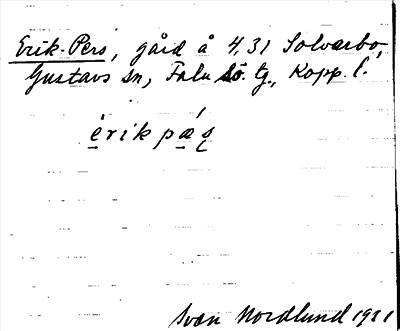 Erik-Pers, gård å 4,31 Solvarbo,
Gustavs sn, Falu Sö. tg., Kopp. l.
è̱rikpá̱ʂ
Sven Nordlund 1931